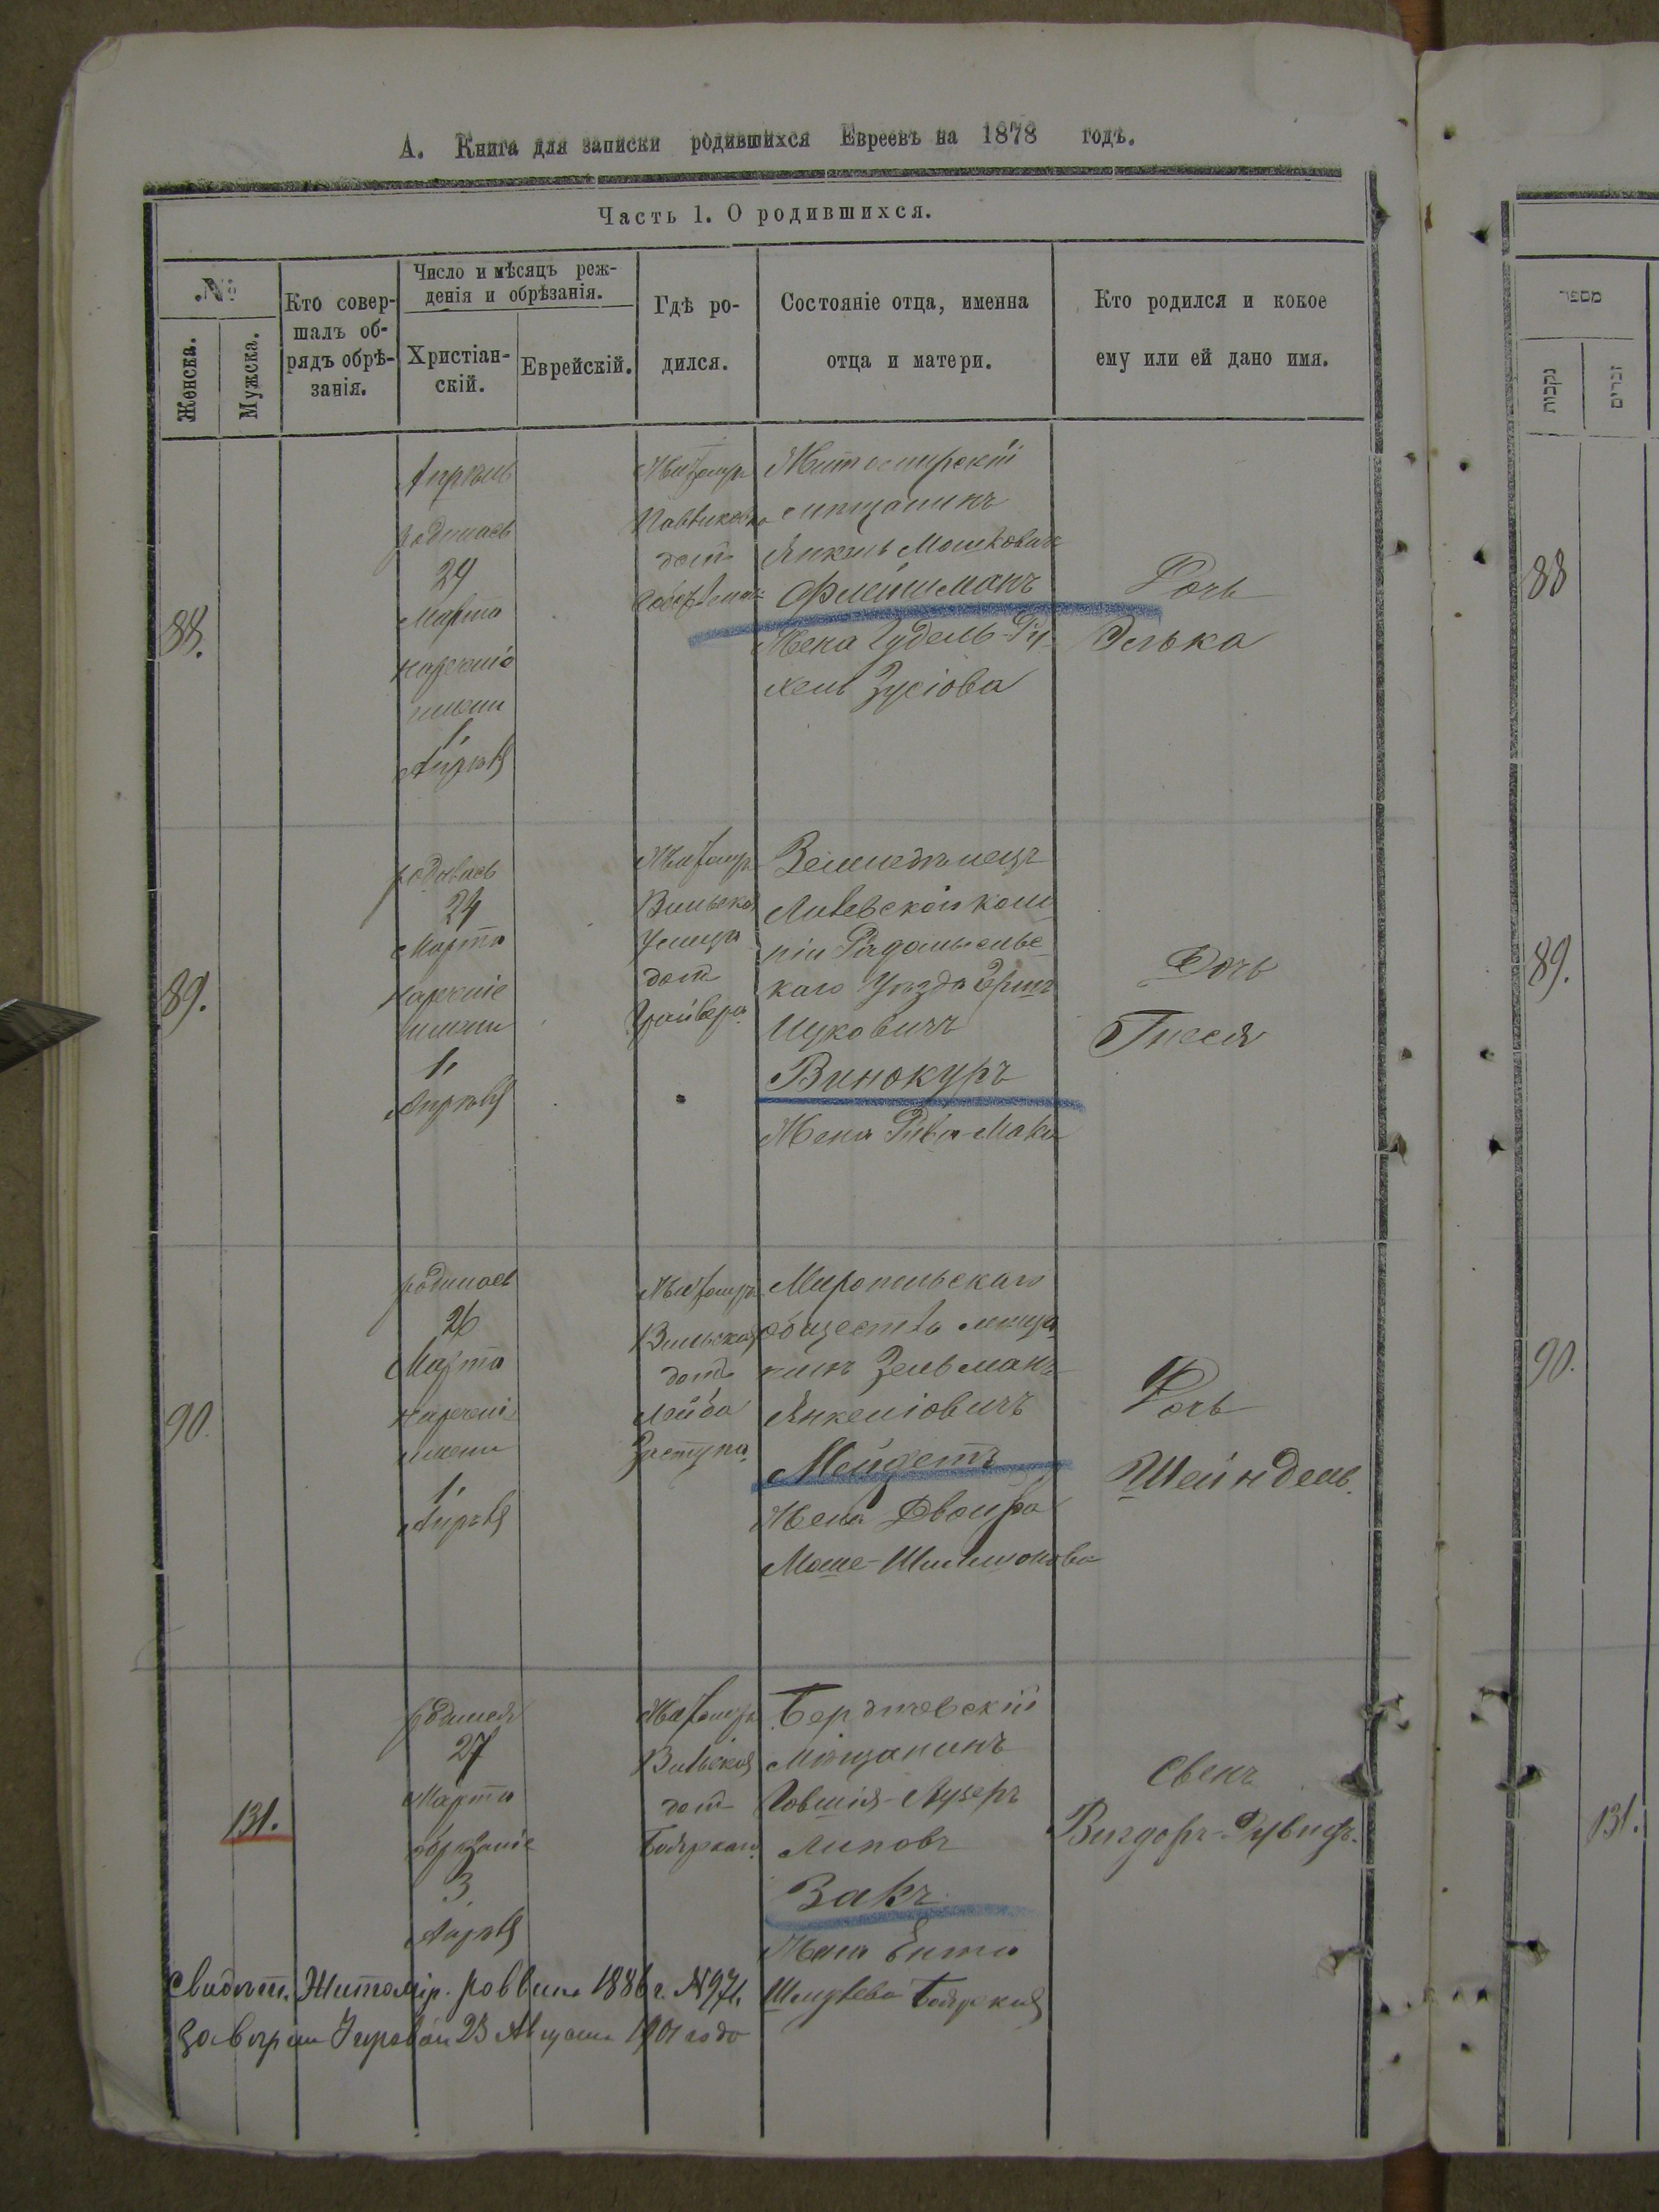 А. Книга для записки родившихся Евреевъ на 1878 годъ.
Часть 1. О родившихся.
№
Женска.
Мужска.
Кто совер-
шалъ об-
рядъ обрѣ-
занія.
Число и мѣсяцъ реж-
денія и обрѣзанія.
Христіан-
скій.
Еврейскій.
Гдѣ ро-
дился.
Состояніе отца, именна
отца и матери.
Кто родился и кокое
ему или ей дано имя.
88.
Апрѣль
родилась
29
Марта
нареченіе
имени
1,
Апрѣля
Житомиръ
домъ
Житомирскій
мѣщанинъ
Янкель Мошковичъ
Флейшманъ
Жена Гудель-Ру-
хель Зусіова
Дочь
Элька
89.
родилась
24
Марта
нареченіе
имени
1,
Апрѣля
Житомиръ
Вильская
Улица
домъ
Земледѣлецъ
кого Уѣзда Герш
Ицковичъ
Винокуръ
Жена Рива-Мака
Дочь
Гнеся
90.
родилась
26
Марта
нареченіе
имени
1,
Апрѣля
Житомиръ
Вильская
домъ
Лейба
Миропольскаго
общества мѣща
нинъ Зельманъ
Янкеліовичъ
Жена Двойра
Дочь
Шейндель.
131.
родился
27
Марта
обрѣзаніе
3.
Апрѣля
Житомиръ
Вильская
домъ
Боярскаго
Бердичевскій
Мѣщанинъ
Іовшія-Лузеръ
Липовъ
Закъ
Жена Ента
Шмулева Боярская
Сынъ
Вигдоръ-Рувинъ.
Свидѣт. Житомір. раввина 1886 г. № 971,
23 Августа 1901 года
מספר
נקבות
זכרים
88
89.
90.
131.